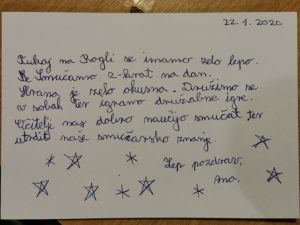 22.1.2020
Tukaj na Rogli se imamo zelo lepo.
Smučamo 2-krat na dan.
Hrana je zelo okusna. Družimo se
v sobah ter igramo družabne igre.
Učitelji nas dobro naučijo smučat ter
utrdit naše smučarsko znanje.
Lep pozdrav,
Ana.